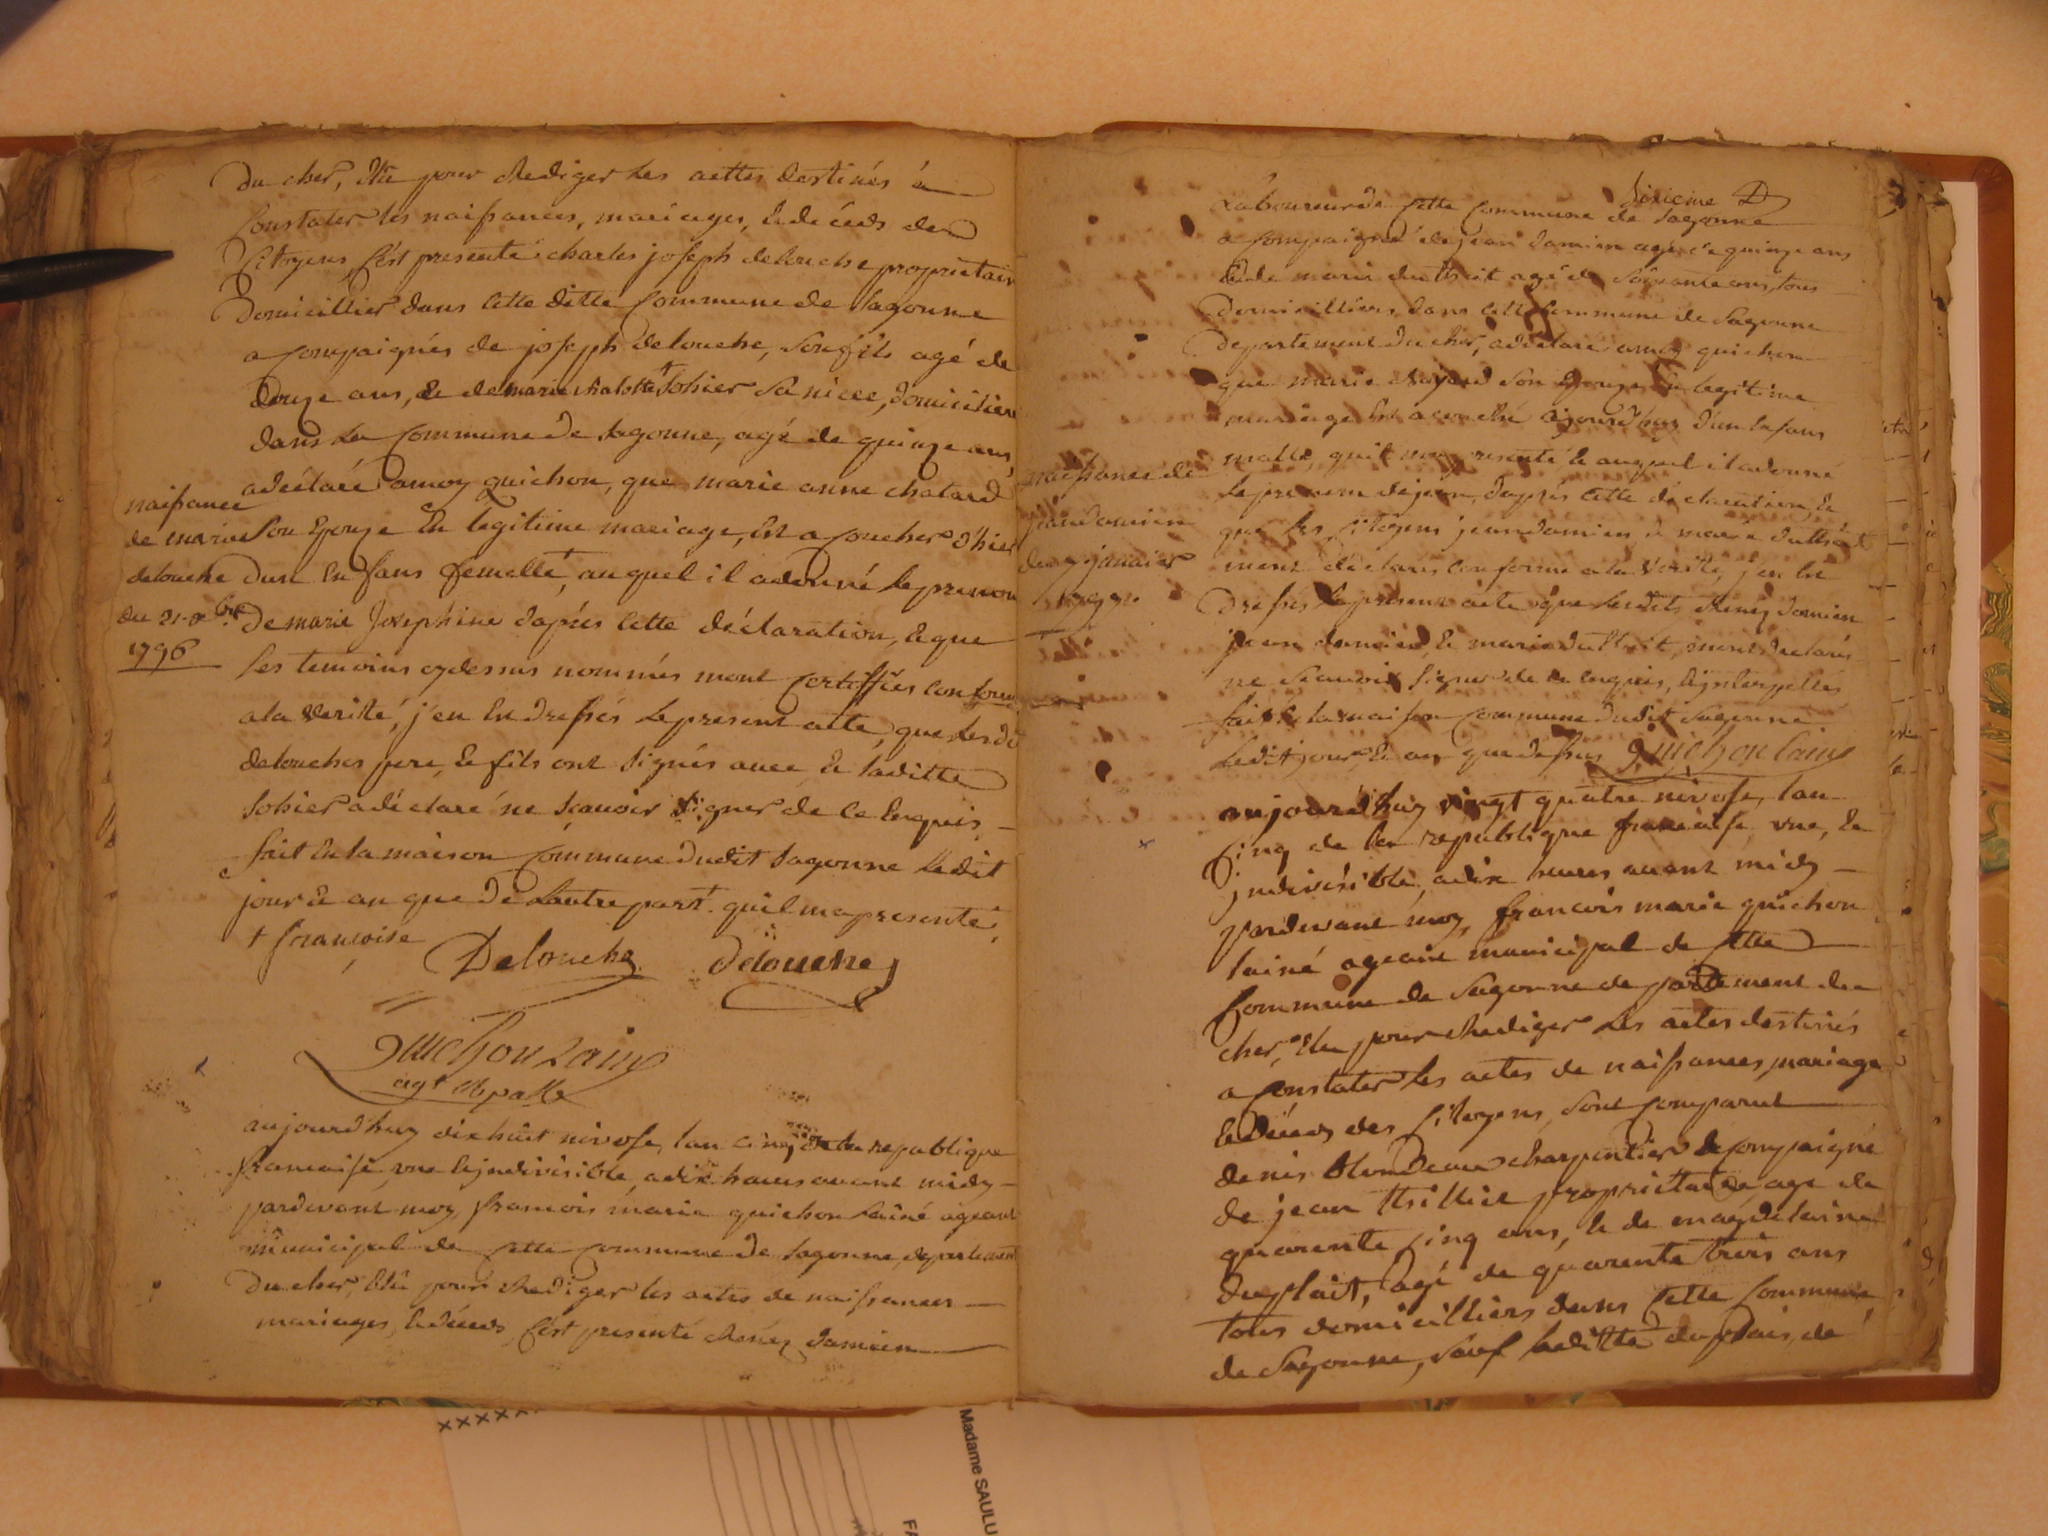 Du cher, élu pour Rediger les acttes destinés à
Constater les naissances, mariages, & décés des
Citoyens, s'est presenté charles joseph delouche proprietaire
Domicillier dans cette ditte Commune de Sagonne
a Compaignés de joseph delouche, son fils agé de
douze ans, & de marie charlotte + Sohier Sa niece, domicilier
dans la Commune de Sagonne, agé de quinze ans,
a déclaré amoy guichon, que marie anne chatard
naissance
de marie
delouche
du 21-xbre
1796
Son Epouze En legitime mariage, Est a Coucher d'hier
dun Enfans femelle, auquel il adonné le prenom
De marie Josephine d'aprés Cette déclaration, & que
les temoins cydessus nommés mont Certiffiés Conforme
ala verité, j'en En dressés le present atte, que lesdt
delouches pere, & fils ont signés avec & laditte
Sohier adéclaré ne Sçavoir signer de ce Enquis,
fait En la maison Commune dudit Sagonne ledit
jour & an que de Lautre part. quil ma presenté,
+ françoise
Delouche delouche
Guichon Lainé
agt Mpalle
aujourd'huy dixhuit nivose, lan cinq de la republique
francaise, vne & jndivisible, a dix heures avant midy
pardevant moy, francois marie guichon Lainé ageant
municipal de Cette Commune de Sagonne, departement
Du cher, Elû pour Rediger les actes de naissances
mariages, & décés, s'est presenté Renez damien
Sixieme
Laboureur de Cette Commune de Sagonne
a Compaigné de jean damien agé de quinze ans
& de marie duthoit agé de Soixante ans, tous
Domicilliers dans Cette Commune de Sagonne
Departement du cher, a déclaré amoy guichon
que marie Son Epouze En legitime
mariage Est acouché ajourd'huy d'un Enfans
malle, quil ma presenté & auquel il adonné
naissance de
jean damien
du 7 janvier
1797
le prenom dejean, daprés Cette déclaration, &
que les Citoyens jean damien & marie duthoit
mont déclarés Conforme ala verité, j'en En
dressés le present acte que lesdits Renez damien
jean damien, & marie duthoit, mont declarés
ne Scavoir signer de ce Enquis, & jnterpellés
fait En la maison Commune dudit Sagonne
ledit jour, & an que dessus Guichon Lainé
aujourd'huy vingt quatre nivose, lan
Cinq de la republique francaise vne, &
jndivisible, a dix heures avant midy
pardevant moy, francois marie guichon
lainé ageant municipal de Cette
Commune de Sagonne departement du
cher, Elu pour Rediger les actes destinés
a Constater les actes de naissances, mariage
& décés des Citoyens, Sont Comparut
denis blondeau charpentier & Compaigné
de jean proprietaire agé de
quarente Cinq ans, & de magdelaine
duplait, agé de quarente trois ans
tous domicilliers dans Cette Commune
de Sagonne, Sauf laditte duplais, de
Madame SAULU
FA